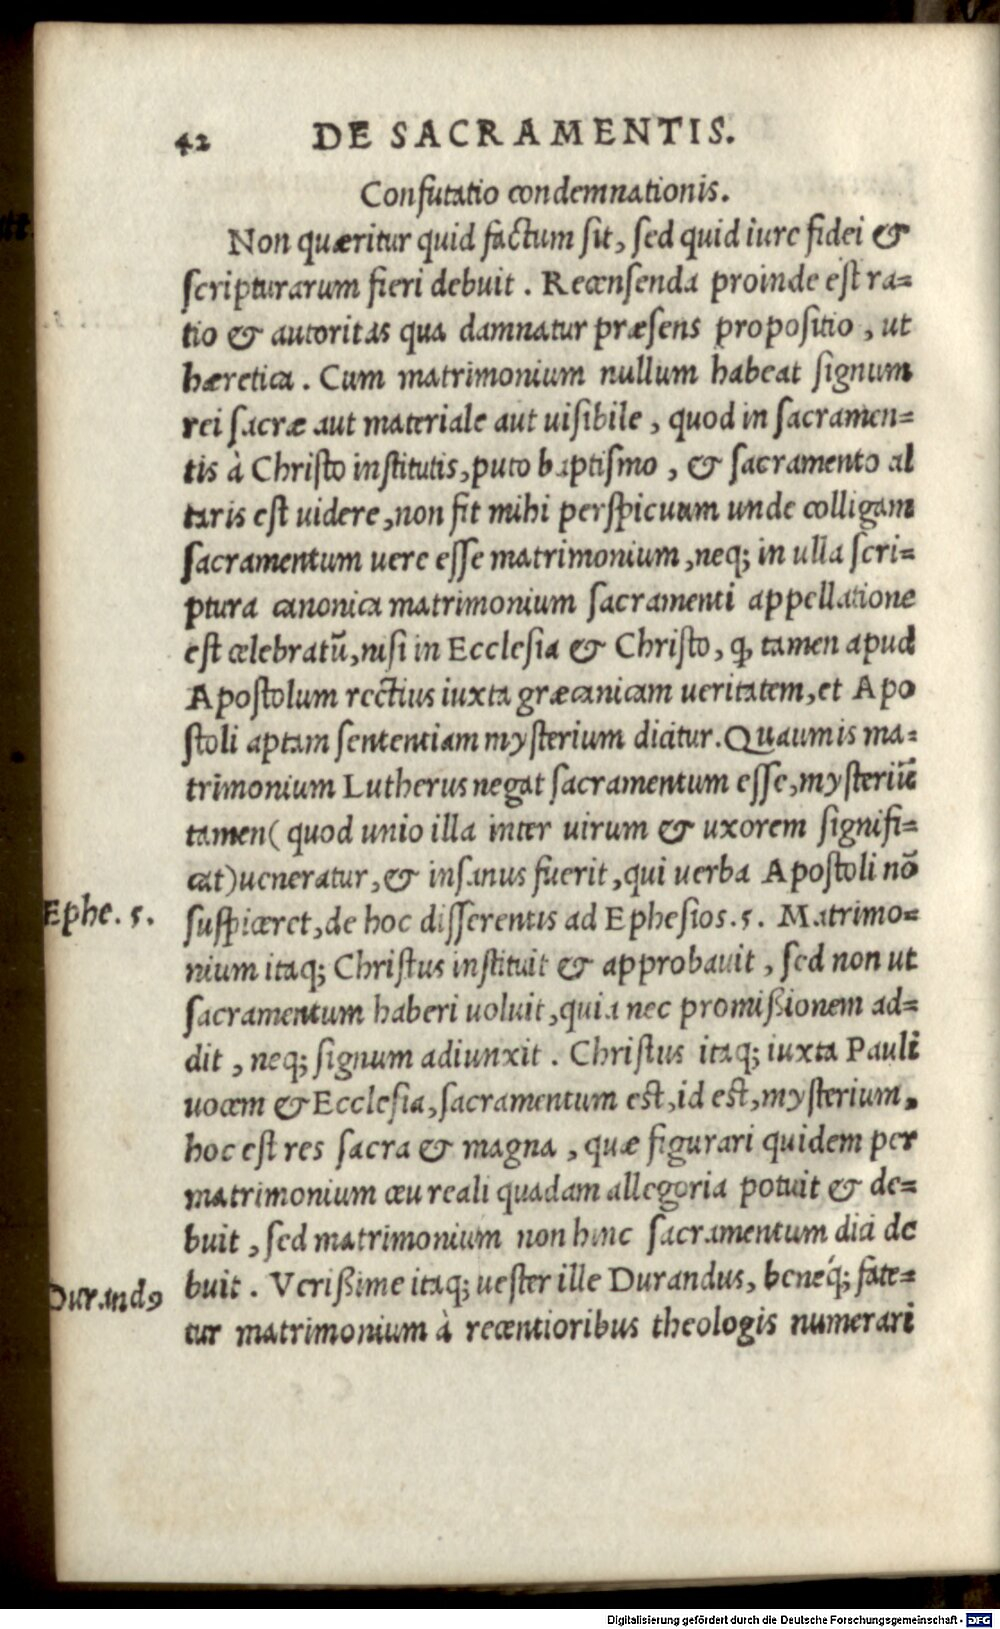 42 DE SACRAMENTIS.
Confutatio condemnationis.
Non quæritur quid factum ſit, ſed quid iure fidei &
ſcripturarum fieri debuit. Recenſenda proinde eſt ra=
tio & autoritas qua damnatur præſens propoſitio, ut
hæretica. Cum matrimonium nullum habeat ſignum
rei ſacræ aut materiale aut uiſibile, quod in ſacramen=
tis à Chriſto inſtitutis, puto baptiſmo, & ſacramento al
taris eſt uidere, non fit mihi perſpicuum unde colligam
ſacramentum uere eſſe matrimonium, neq; in ulla ſcri=
ptura canonica matrimonium ſacramenti appellatione
eſt celebratū, niſi in Eccleſia & Chriſto, ꝙ tamen apud
Apoſtolum rectius iuxta græcanicam ueritatem, et Apo
ſtoli aptam ſententiam myſterium dicitur. Quaumis ma=
trimonium Lutherus negat ſacramentum eſſe, myſteriū
tamen (quod unio illa inter uirum & uxorem ſignifi=
cat) ueneratur, & inſanus fuerit, qui uerba Apoſtoli nō
Ephe. 5.
ſuſpiceret, de hoc diſſerentis ad Epheſios. 5. Matrimo=
nium itaq; Chriſtus inſtituit & approbauit, ſed non ut
ſacramentum haberi uoluit, quia nec promißionem ad=
dit, neq; ſignum adiunxit. Chriſtus itaq; iuxta Pauli
uocem & Eccleſia, ſacramentum eſt, id eſt, myſterium,
hoc eſt res ſacra & magna, quæ figurari quidem per
matrimonium ceu reali quadam allegoria potuit & de=
buit, ſed matrimonium non hinc ſacramentum dici de
Durandꝰ
buit. Verißime itaq; ueſter ille Durandus, beneq́; fate=
tur matrimonium à recentioribus theologis numerari
Digitalisierung gefördert durch die Deutsche Forschungsgemeinschaft - DFG